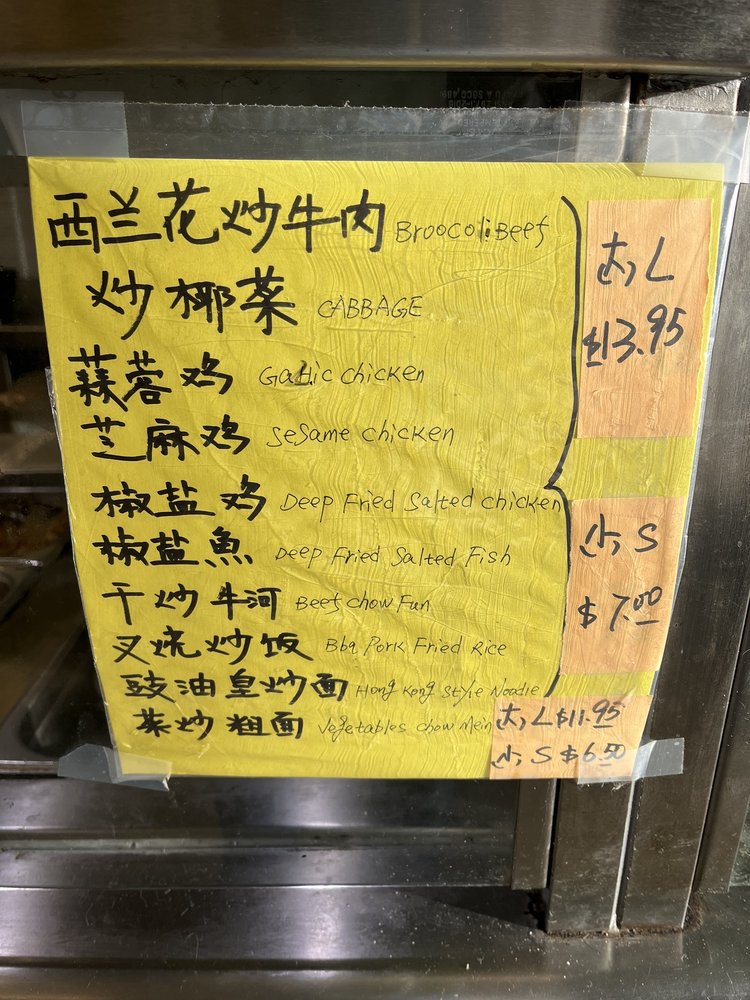 西兰花炒牛肉 Broocoli Beef
炒椰菜 CABBAGE
蒜蓉鸡 Garlic chicken
芝麻鸡 sesame chicken
椒盐鸡 Deep Fried Salted chicken
椒盐魚 Deep Fried Salted Fish
干炒牛河 Beef chow Fun
叉烧炒饭 Bbq Pork Fried Rice
豉油皇炒面 Hong Kong Style Noodle
菜炒粗面 Vegetables chow Mein
大, L
$13.95
小, S
$7.00
大, L $11.95
小, S $6.50